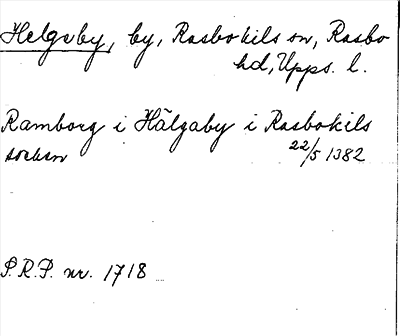 Helgeby, by, Rasbokils sn, Rasbo
hd, Upps. l.
Ramborg i Hälgaby i Rasbokils
socken 22/5 1382
P.R.P. nr. 1718